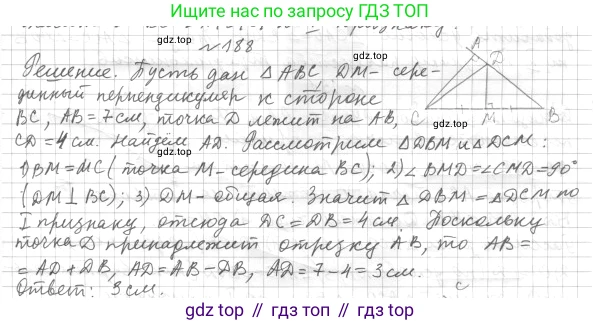 Ищите нас по запросу ГДЗ ТОП
№188
gdz.top
Решение. Пусть дан △ABC, DM - сере-
динный перпендикуляр к стороне
BC, AB = 7 см, точка D лежит на AB,
CD = 4 см. Найдём AD. Рассмотрим △DBM и △DCM:
1) BM = MC (точка M - середина BC); 2) ∠BMD = ∠CMD = 90°
(DM ⊥ BC); 3) DM - общая. Значит △DBM = △DCM по
I признаку, отсюда DC = DB = 4 см. Поскольку
точка D принадлежит отрезку AB, то AB =
= AD + DB, AD = AB - DB, AD = 7 - 4 = 3 см.
Ответ: 3 см.
A
D
C
M
B
gdz.top
gdz.top
gdz.top
gdz.top
gdz.top
gdz.top // гдз топ // gdz top // гдз.топ